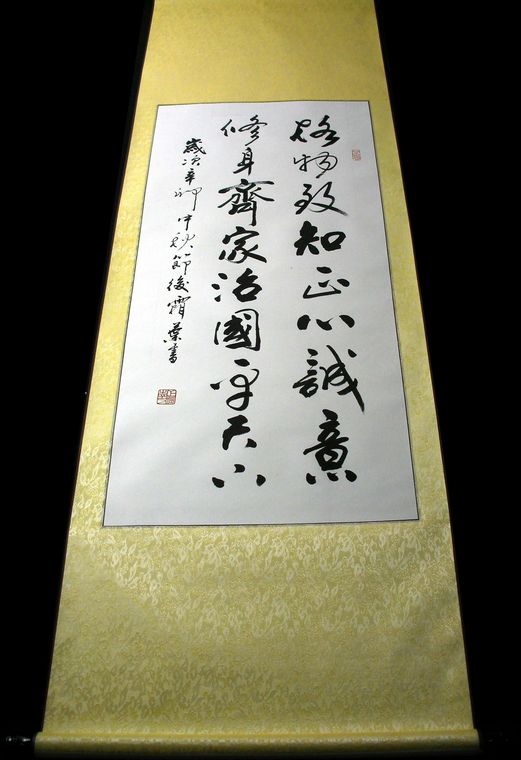 格物致知正心誠意
修身齊家治國平天下
歲次辛卯中秋節後霄葉書